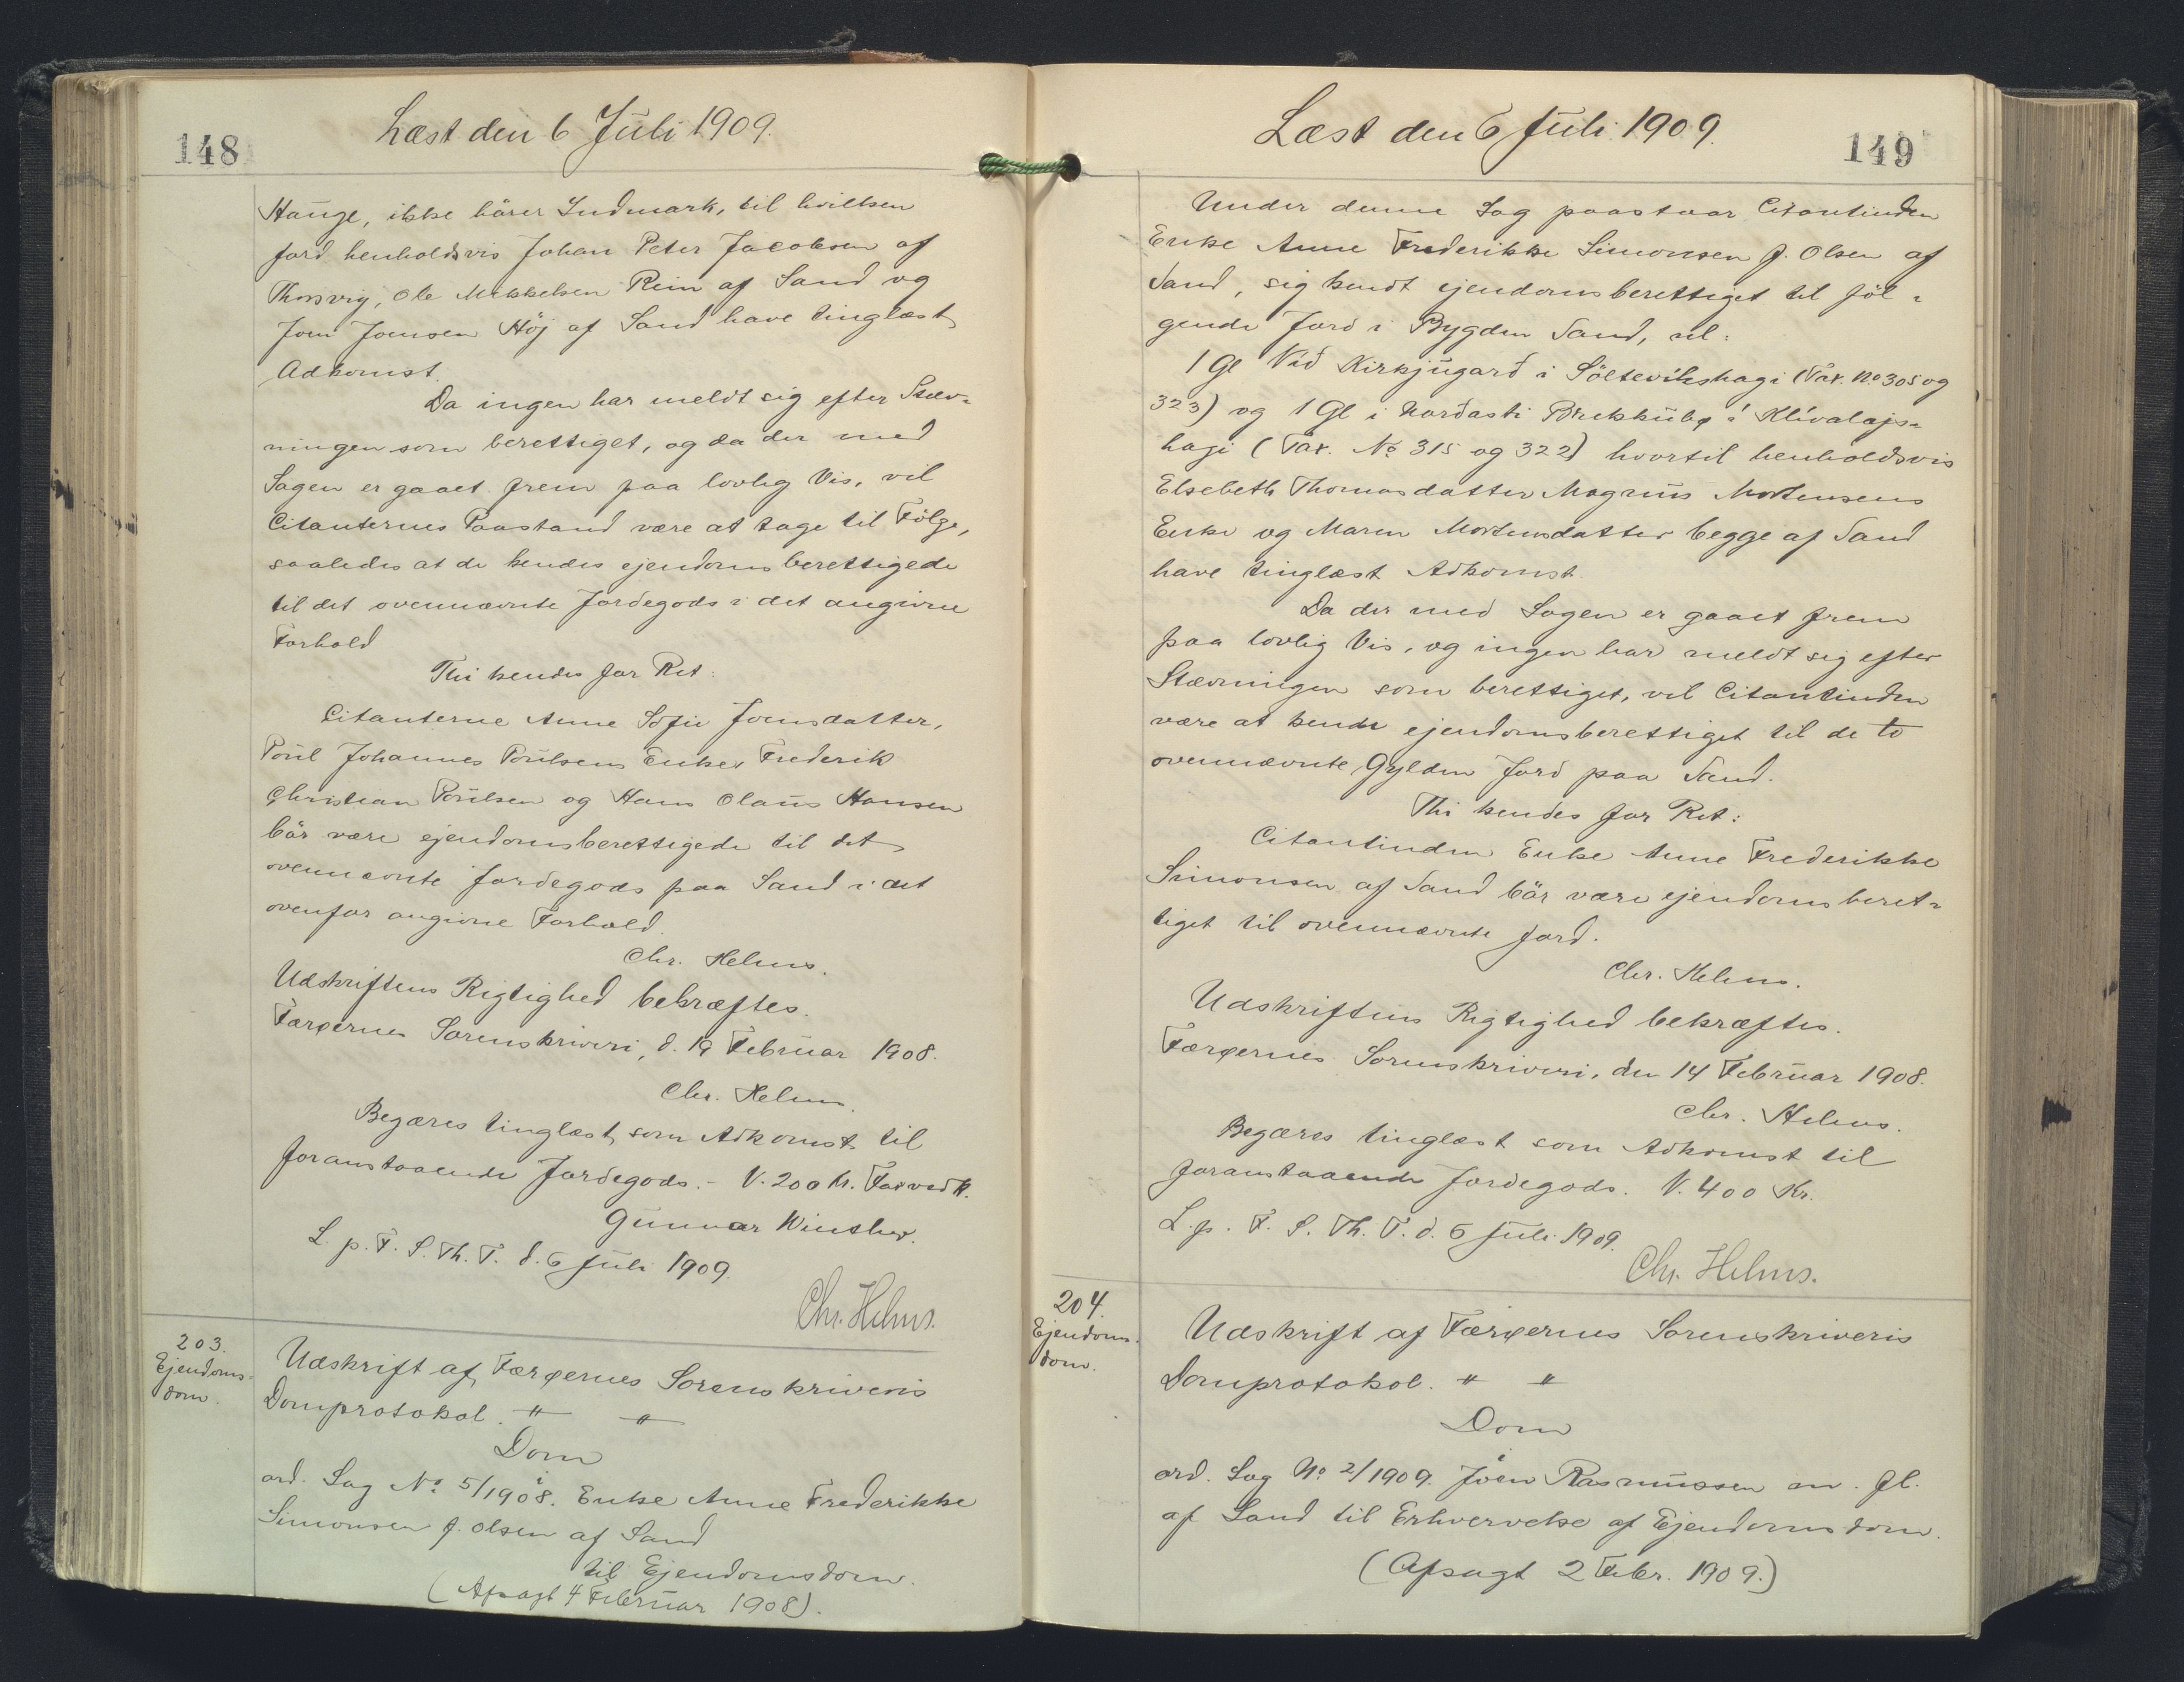 148
Læst den 6 Juli 1909.
Hauge, ikke hører Indmark, til hvilken
Jord henholdsvis Johan Peter Jacobsen af
Thorsvig, Ole Mikkelsen Rein af Sand og
Joen Joensen Høj af Sand have tinglæst
Adkomst.
Da ingen har meldt sig efter Stæv-
ningen som berettiget, og da der med
Sagen er gaaet frem paa lovlig Vis, vil
Citanternes Paastand være at tage til Følge,
saaledes at de kendes ejendomsberettigede
til det ovennævnte Jordegods i det angivne
Forhold
Thi kendes for Ret:
Citanterne Anne Sofie Joensdatter,
Poul Johannes Poulsens Enke, Frederik
Christian Poulsen og Hans Olaus Hansen
bör være ejendomsberettigede til det
ovennævnte Jordegods paa Sand i det
ovenfor angivne Forhold.
Chr. Helms.
Udskriftens Rigtighed bekræftes.
Færøernes Sorenskriveri, d. 19 Februar 1908.
Chr. Helms.
Begæres tinglæst som Adkomst til
foranstaaende Jordegods. - V. 200 Kr.
Gunnar Winther.
L. p. F. S. Th. T. d. 6 Juli 1909.
Chr. Helms.
203.
Ejendoms-
dom.
Udskrift af Færøernes Sorenskriveris
Domprotokol. " "
Dom
i
ord. Sag No. 5/1908. Enke Anne Frederikke
Simonsen f. Olsen af Sand
til Ejendomsdom.
(Afsagt 4 Februar 1908).
Læst den 6 Juli 1909.
149
Under denne Sag paastaar Citantinden
Enke Anne Frederikke Simonsen f. Olsen af
Sand, sig kendt ejendomsberettiget til föl-
gende Jord i Bygden Sand, nl:
1 Gl Vid Kirkjugard i Söltevikshagi (Tax. No 305 og
323) og 1 Gl i Nordasti Brekkubø i Klivalojs-
hagi (Tax. No 315 og 322) hvortil henholdsvis
Elsebeth Thomasdatter Magnus Mortensens
Enke og Maren Mortensdatter begge af Sand
have tinglæst Adkomst.
Da der med Sagen er gaaet frem
paa lovlig Vis, og ingen har meldt sig efter
Stævningen som berettiget, vil Citantinden
være at kende ejendomsberettiget til de to
ovennævnte Gylden Jord paa Sand.
Thi kendes for Ret:
Citantinden Enke Anne Frederikke
Simonsen af Sand bör være ejendomsberet-
tiget til ovennævnte Jord.
Chr. Helms.
Udskriftens Rigtighed bekræftes.
Færøernes Sorenskriveri, den 14 Februar 1908.
Chr. Helms.
Begæres tinglæst som Adkomst til
foranstaaende Jordegods. V. 400 Kr.
L. p. F. S. Th. T. d. 6 Juli 1909.
Chr. Helms.
204.
Ejendoms-
dom.
Udskrift af Færøernes Sorenskriveris
Domprotokol. " "
Dom
i
ord. Sag No 2/1909. Joen Rasmussen m. fl.
af Sand til Erhvervelse af Ejendomsdom.
(Afsagt 2 Febr. 1909.)